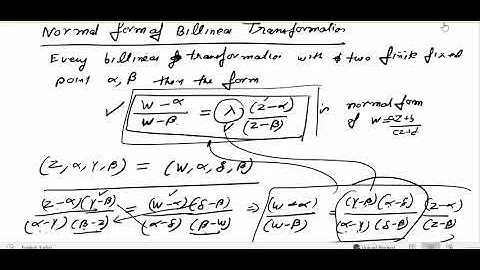 Normal form of Billinear Transformation
Every billinear transformation with two finite fixed
point α, β then the form
(w-α)/(w-β) = λ (z-α)/(z-β) is normal form
of w = (az+b)/(cz+d)
(z, α, γ, β) = (w, α, δ, β)
(z-α)(γ-β)/(α-γ)(β-z) = (w-α)(δ-β)/(α-δ)(β-w) ⇒ (w-α)/(w-β) = (γ-β)(α-δ)/(α-γ)(δ-β) (z-α)/(z-β)